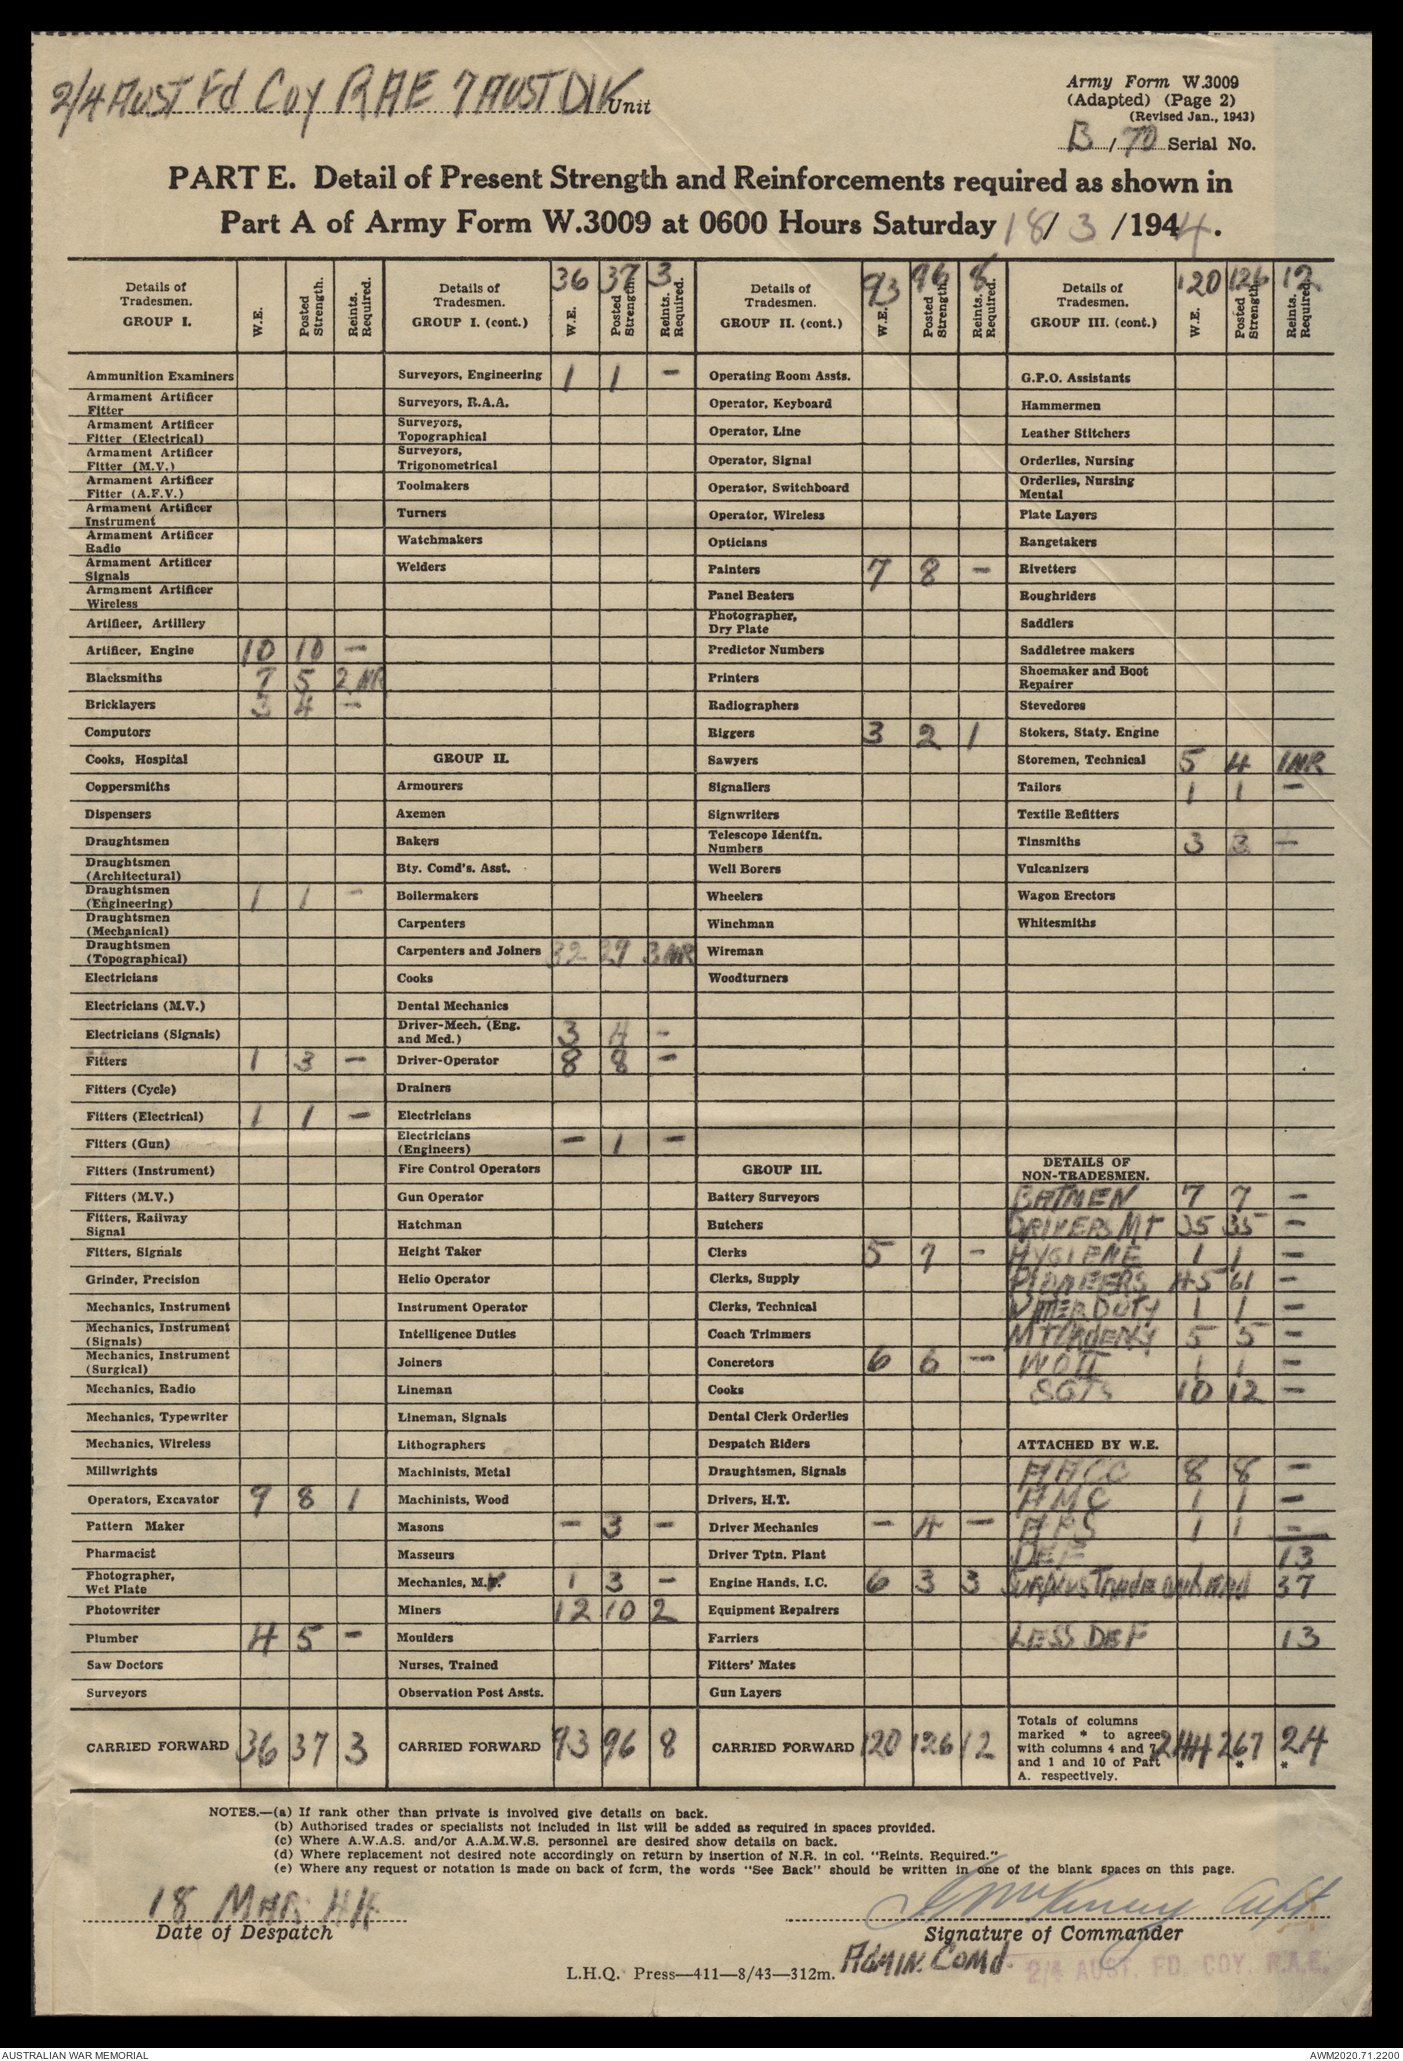 2/4 AUST Fd Coy RAE 7 AUST DIV Unit
Army Form W.3009
(Adapted) (Page 2)
(Revised Jan., 1943)
B/70 Serial No.
PART E. Detail of Present Strength and Reinforcements required as shown in
Part A of Army Form W.3009 at 0600 Hours Saturday 18/ 3 /1944.
Details of Tradesmen. GROUP I. W.E. Posted Strength. Reints. Required. Details of Tradesmen. GROUP I. (cont.) 36 W.E. 37 Posted Strength. 3 Reints. Required. Details of Tradesmen. GROUP II. (cont.) 93 W.E. 96 Posted Strength. 8 Reints. Required. Details of Tradesmen. GROUP III. (cont.) 120 W.E. 126 Posted Strength. 12 Reints. Required.
Ammunition Examiners Surveyors, Engineering 1 1 - Operating Room Assts. G.P.O. Assistants
Armament Artificer Fitter Surveyors, R.A.A. Operator, Keyboard Hammermen
Armament Artificer Fitter (Electrical) Surveyors, Topographical Operator, Line Leather Stitchers
Armament Artificer Fitter (M.V.) Surveyors, Trigonometrical Operator, Signal Orderlies, Nursing
Armament Artificer Fitter (A.F.V.) Toolmakers Operator, Switchboard Orderlies, Nursing Mental
Armament Artificer Instrument Turners Operator, Wireless Plate Layers
Armament Artificer Radio Watchmakers Opticians Rangetakers
Armament Artificer Signals Welders Painters 7 8 - Rivetters
Armament Artificer Wireless Panel Beaters Roughriders
Artificer, Artillery Photographer, Dry Plate Saddlers
Artificer, Engine 10 10 - Predictor Numbers Saddletree makers
Blacksmiths 7 5 2 NR Printers Shoemaker and Boot Repairer
Bricklayers 3 4 - Radiographers Stevedores
Computors Riggers 3 2 1 Stokers, Staty. Engine
Cooks, Hospital GROUP II. Sawyers Storemen, Technical 5 4 1NR
Coppersmiths Armourers Signallers Tailors 1 1 -
Dispensers Axemen Signwriters Textile Refitters
Draughtsmen Bakers Telescope Identfn. Numbers Tinsmiths 3 3 -
Draughtsmen (Architectural) Bty. Comd's. Asst. Well Borers Vulcanizers
Draughtsmen (Engineering) 1 1 - Boilermakers Wheelers Wagon Erectors
Draughtsmen (Mechanical) Carpenters Winchman Whitesmiths
Draughtsmen (Topographical) Carpenters and Joiners 32 29 3 NR Wireman
Electricians Cooks Woodturners
Electricians (M.V.) Dental Mechanics
Electricians (Signals) Driver-Mech. (Eng. and Med.) 3 4 -
Fitters 1 3 - Driver-Operator 8 8 -
Fitters (Cycle) Drainers
Fitters (Electrical) 1 1 - Electricians
Fitters (Gun) Electricians (Engineers) - 1 -
Fitters (Instrument) Fire Control Operators GROUP III. DETAILS OF NON-TRADESMEN.
Fitters (M.V.) Gun Operator Battery Surveyors BATMEN 7 7 -
Fitters, Railway Signal Hatchman Butchers DRIVERS MT 35 35 -
Fitters, Signals Height Taker Clerks 5 7 - HYGIENE 1 1 -
Grinder, Precision Helio Operator Clerks, Supply PIONEERS 45 61 -
Mechanics, Instrument Instrument Operator Clerks, Technical WATER DUTY 1 1 -
Mechanics, Instrument (Signals) Intelligence Duties Coach Trimmers MT/ORDERLY 5 5 -
Mechanics, Instrument (Surgical) Joiners Concretors 6 6 - WO II 1 1 -
Mechanics, Radio Lineman Cooks SGTS 10 12 -
Mechanics, Typewriter Lineman, Signals Dental Clerk Orderlies
Mechanics, Wireless Lithographers Despatch Riders ATTACHED BY W.E.
Millwrights Machinists, Metal Draughtsmen, Signals AACC 8 8 -
Operators, Excavator 9 8 1 Machinists, Wood Drivers, H.T. AMC 1 1 -
Pattern Maker Masons - 3 - Driver Mechanics - 4 - APS 1 1 -
Pharmacist Masseurs Driver Tptn. Plant DEF 13
Photographer, Wet Plate Mechanics, M.V. 1 3 - Engine Hands, I.C. 6 3 3 SURPLUS Trade 37
Photowriter Miners 12 10 2 Equipment Repairers
Plumber 4 5 - Moulders Farriers LESS DEF 13
Saw Doctors Nurses, Trained Fitters' Mates
Surveyors Observation Post Assts. Gun Layers
CARRIED FORWARD 36 37 3 CARRIED FORWARD 93 96 8 CARRIED FORWARD 120 126 12 Totals of columns marked * to agree with columns 4 and 7 and 1 and 10 of Part A. respectively. 244 267 * 24 *
NOTES.—(a) If rank other than private is involved give details on back.
(b) Authorised trades or specialists not included in list will be added as required in spaces provided.
(c) Where A.W.A.S. and/or A.A.M.W.S. personnel are desired show details on back.
(d) Where replacement not desired note accordingly on return by insertion of N.R. in col. "Reints. Required."
(e) Where any request or notation is made on back of form, the words "See Back" should be written in one of the blank spaces on this page.
18 MAR 44
Date of Despatch
Signature of Commander
ADMIN. COMD.
2/4 AUST. FD. COY. R.A.E.
L.H.Q. Press—411—8/43—312m.
AUSTRALIAN WAR MEMORIAL
AWM2020.71.2200